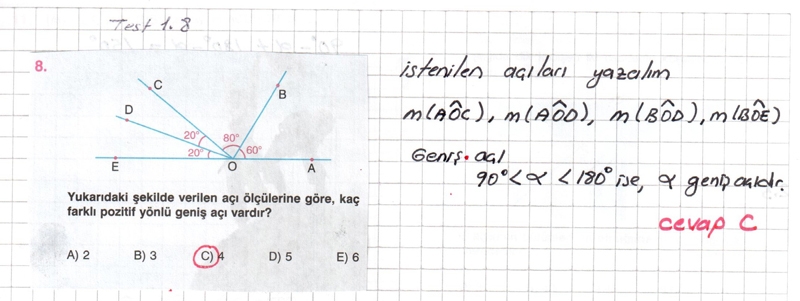 Test 1.8
8.
C
B
D
20°
80°
20°
60°
E
O
A
Yukarıdaki şekilde verilen açı ölçülerine göre, kaç
farklı pozitif yönlü geniş açı vardır?
A) 2 B) 3 C) 4 D) 5 E) 6
istenilen açıları yazalım
m(AÔC), m(AÔD), m(BÔD), m(BÔE)
Geniş açı
90° < α < 180° ise, α geniş açıdır.
cevap C